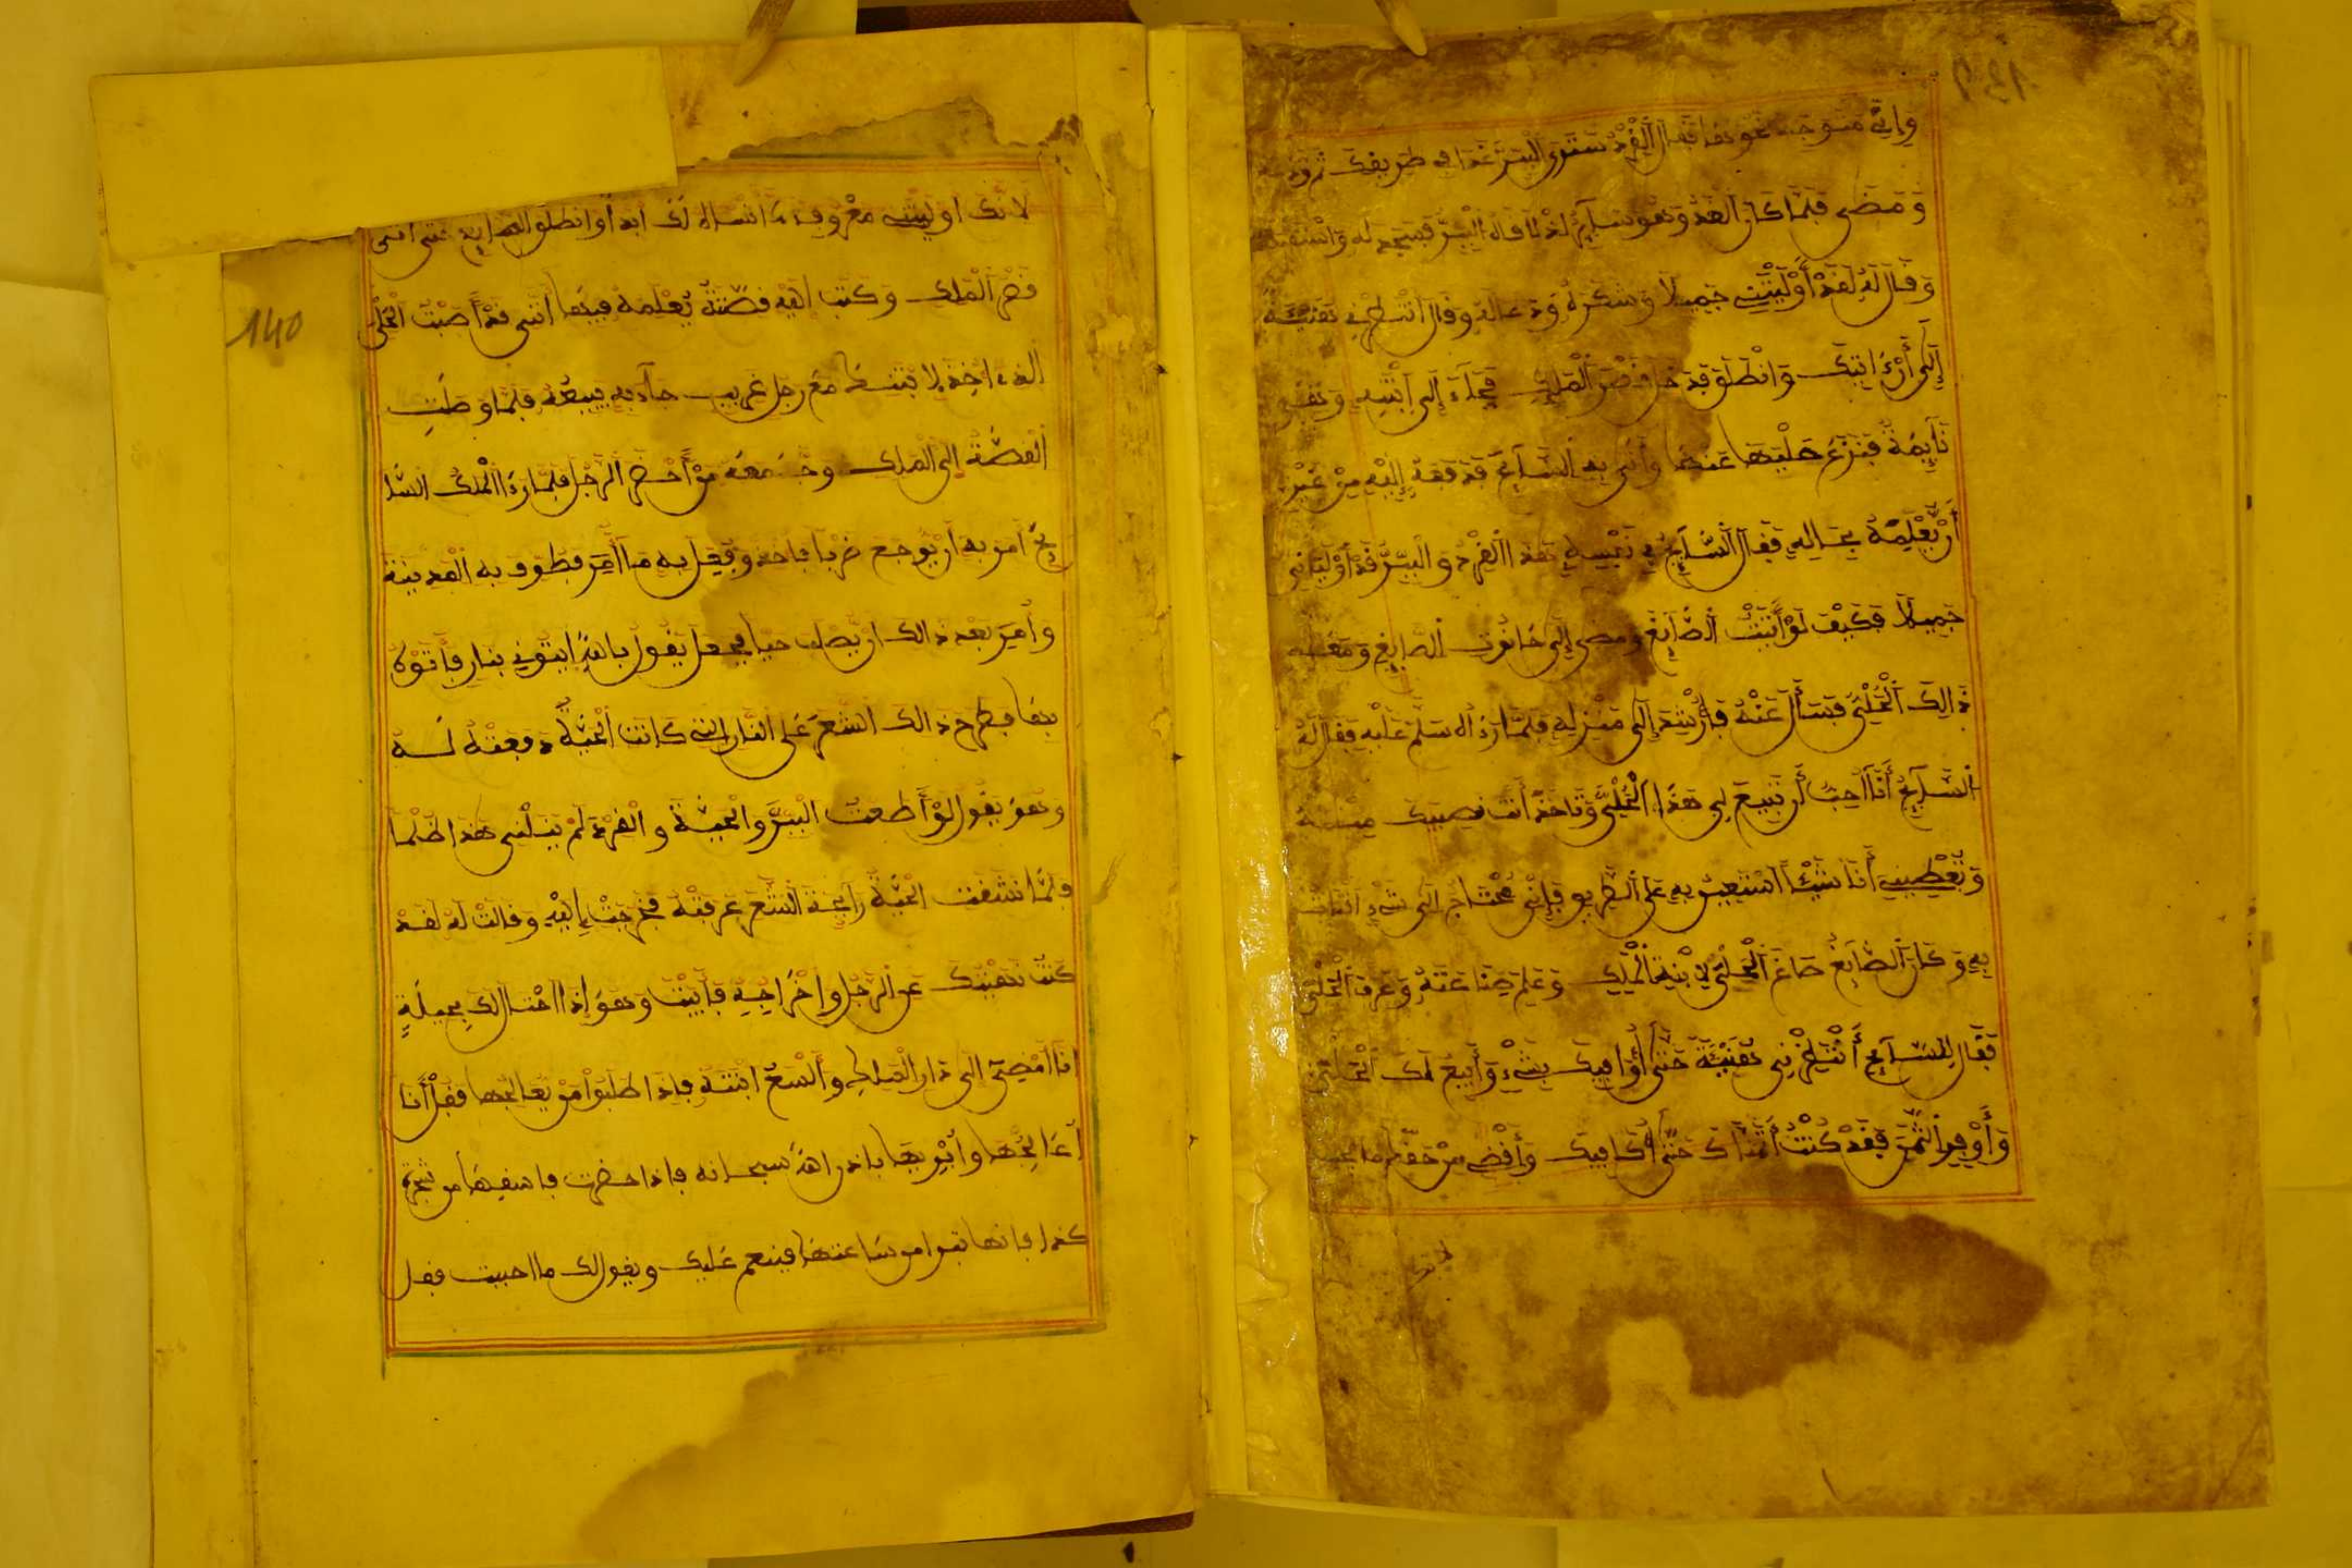 وَإِنِّي مُتوجه نحوهَا فَقَالَ الْقِرْدُ سَتَرَى الْبَبْرَ غَدًا في طريقك ثم
وَمَضَى فَلَمَّا كَانَ الْغَدُ وَهُوَ سَآئِرٌ إِذْ لَاقَاهُ الْبَبْرُ فَسَجَدَ لَهُ
وَقَالَ لَهُ لَقَدْ أَوْلَيْتَنِي جَمِيلًا وَشَكَرَهُ وَدعا لَهُ وَقَالَ انْتَظِرْنِي هُنَيْئَةً
إِلَى أَنْ ءَاتِيَكَ وَانْطَلَقَ فَدَخَلَ قَصْرَ الْمَلِكِ فَجَآءَ إِلَى ابْنَتِهِ وَهِيَ
نَآئِمَةٌ فَنَزَعَ حَلْيَهَا عَنْهَا وَأَتَى بِهِ السَّآئِحَ فَدَفَعَهُ إِلَيْهِ مِنْ غَيْرِ
أَنْ يُعْلِمَهُ بِحَالِهِ فَقَالَ السَّآئِحُ فِي نَفْسِهِ هَذَا الْقِرْدُ وَالْبَبْرُ قَدْ أَوْلَيَانِي
جَمِيلًا فَكَيْفَ لَوْ أَتَيْتُ الصَّآئِغَ وَمضى إِلَى حَانُوتِ الصَّآئِغِ وَمَعَهُ
ذَالِكَ الْحَلْيُ فَسَأَلَ عَنْهُ فَأُرْشِدَ إِلَى مَنْزِلِهِ فَلَمَّا رَءَاهُ سَلَّمَ عَلَيْهِ فَقَالَ لَهُ
السَّآئِحُ أَنَا أُحِبُّ أَنْ تَبِيعَ لِي هَذَا الْحَلْيَ وَتَأخُذَ أَنْتَ نَصِيبَكَ مِنْهُ
وَتُعْطِينِي أَنَا شَيْئًا أَسْتَعِينُ بِهِ عَلَى الطَّرِيقِ فَإِنِّي مُحْتَاجٌ إِلَى شَيْءٍ
بِهِ وَكَانَ الصَّآئِغُ صَاغَ الْحَلْيَ لِابْنَةِ الْمَلِكِ وَعَلِمَ صِنَاعَتَهُ وَعَرَفَ الْحَلْيَ
فَقَالَ لِلسَّآئِحِ أَنْتَظِرْنِي هُنَيْئَةً حَتَّى أُوَافِيكَ بِشَيْءٍ وَأَبِيعَ لَكَ الْحَلْيَ
وَأُوفِرَ الثَّمَنَ فَقَدْ كُنْتُ أَتَمَنَّاكَ حَتَّى أُكَافِيكَ وَأَقْضِيَ مِنْ حَقِّكَ مَا يجب
140
لأنك أوليتني معروفا ما أنساه لك أبدا وانطلق الصايغ حتى أتى
قصر الملك وكتب إليه قصّة يعلمه فيها أنني قد أصبت الحلي
الذي أخذ لابنتك مع رجل غريب جآء به يبيعه فلما وصلت
القصة إلى الملك وجه معه من أحضر الرجل فلما رءا الملك السآ
يح أمر به أن يوجع ضربا فأخذ وفعل به ما أمر فطوف به المدينة
وأمر بعد ذالك أن يصلب حيا فجعل يقول بالله ايتوني بنار فأتوه
بها فطرح ذالك الشعر على النار التي كانت الحية دفعته له
وهو يقول لو أطعت الببر والحية والقرد لم ينلني هذا ظلما
فلما نشقت الحية رآيحة الشعر عرفته فخرجت إليه وقالت له لقد
كنت نهيتك عن الرجل وإخراجه فأبيت وهو إذا احتال لك بحيلة
أنا أمضي إلى دار الملك وألسع ابنته فإذا طلبوا من يعالجها فقل أنا
أعالجها وأبريها بإذن الله سبحانه فإذا حضرت فاسقيها من شجرة
كذا فإنها تبرا من ساعتها فينعم عليك ويقول لك ما أحببت فقل